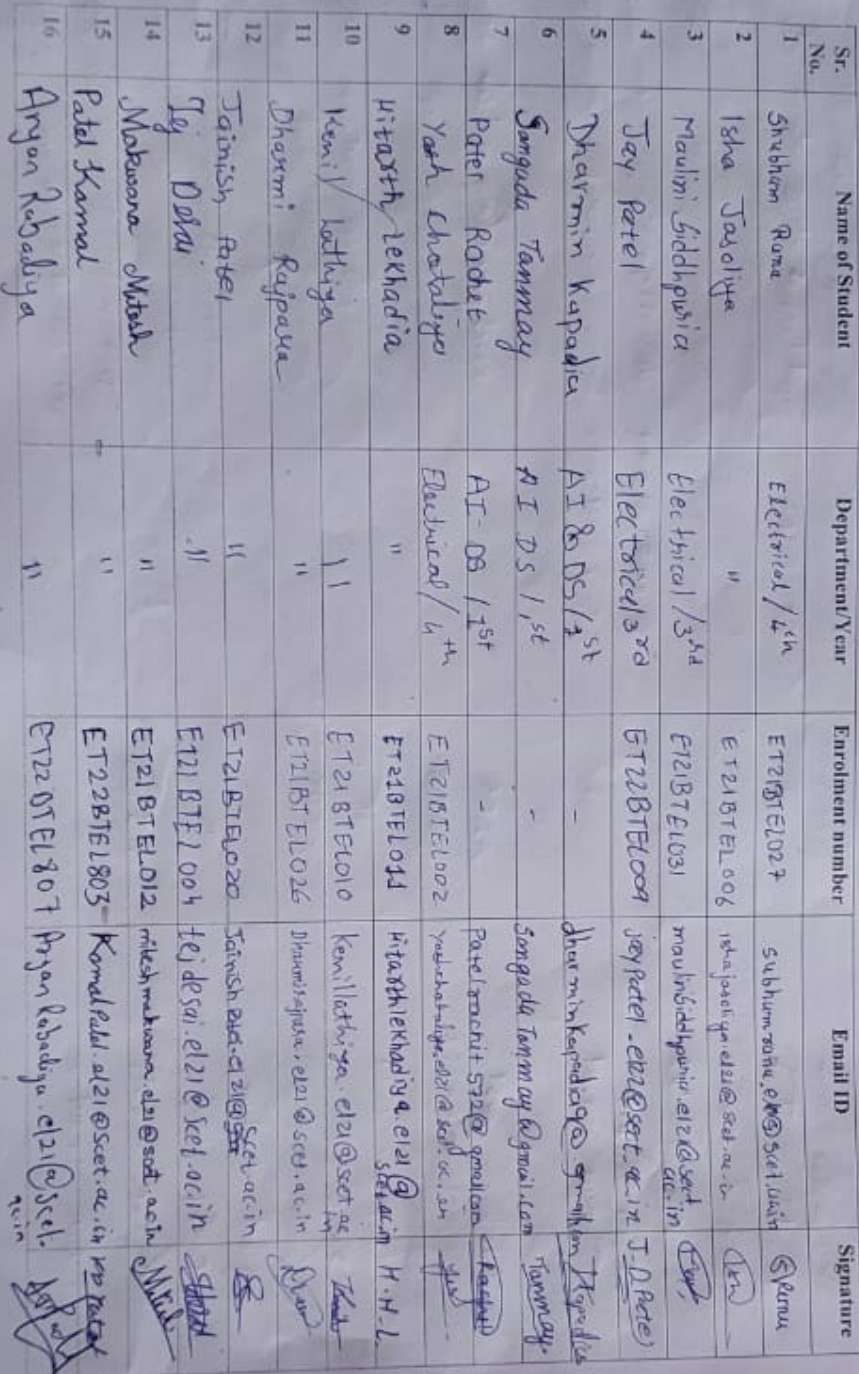 Sr. No. Name of Student Department/Year Enrolment number Email ID Signature
1 Shubham Rana Electrical/4th ET21BTEL027
2 Isha Jasoliya " ET21BTEL006 ishajasoliya.el21@scet.ac.in
3 Maulini Siddhpuria Electrical/3rd ET21BTEL031
4 Jay Patel Electrical 3rd ET22BTEL009 jaypatel.el22@scet.ac.in J.D.Patel
5 Dharmin Kapadia AI & DS/1st - dharminkapadia9@gmail.com
6 Songada Tanmay AI DS/1st - Songada Tanmay@gmail.com Tanmay
7 Patel Rachit AI-DS/1st - Patelrachit572@gmail.com
8 Yash Chotaliya Electrical/4th ET21BTEL002 yashchotaliya.el21@scet.ac.in
9 Hitarth Lekhadia " ET21BTEL011 Hitarthlekhadiya.el21@scet.ac.in H.N.L.
10 Kenil Lathiya " ET21BTEL010 Kenillathiya.el21@scet.ac.in
11 Dharmi Rajpara " ET21BTEL026 Dharmirajpara.el21@scet.ac.in
12 Jainish Patel " ET21BTEL020 scet.ac.in
13 Tej Desai " ET21BTEL004 tejdesai.el21@scet.ac.in
14 Makwana Mitesh " ET21BTEL012 miteshmakwana.el21@scet.ac.in
15 Patel Kamal " ET22BTEL803 KamalPatel.el21@scet.ac.in
16 Aryan Rabadiya " ET22BTEL807 AryanRabadiya.el21@scet.ac.in